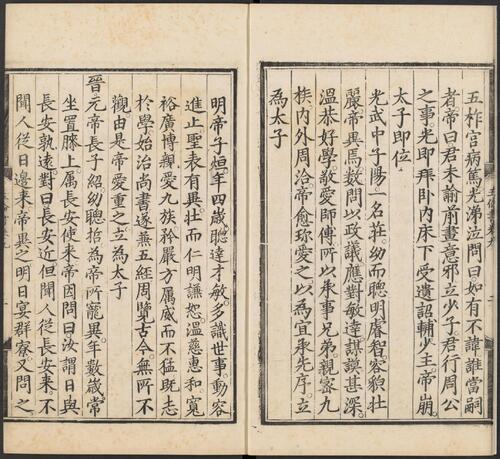 五柞宮病篤光涕泣問曰如有不諱誰當嗣
者帝曰君未諭前畫意邪立少子君行周公
之事光即拜卧内床下受遺詔輔少主帝崩
太子即位
光武中子陽一名莊幼而聰明睿智容貌壯
麗帝異焉數問以政議應對敏達謀謨甚深
溫恭好學敬愛師傅所以承事兄弟親密九
族内外周洽帝愈珍愛之以為宜承先序立
為太子
明帝子烜年四歲聰達才敏多識世事動容
進止聖表有異壯而仁明謙恕溫慈惠和寬
裕廣博親愛九族矜嚴方厲威而不猛既志
於學始治尚書遂兼五經周覽古今無所不
觀由是帝愛重之立為太子
晉元帝長子紹幼聰哲為帝所寵異年數歲常
坐置膝上属長安使來帝因問曰汝謂日與
長安孰遠對曰長安近但聞人從長安來不
聞人從日邊來帝異之明日宴群寮又問之